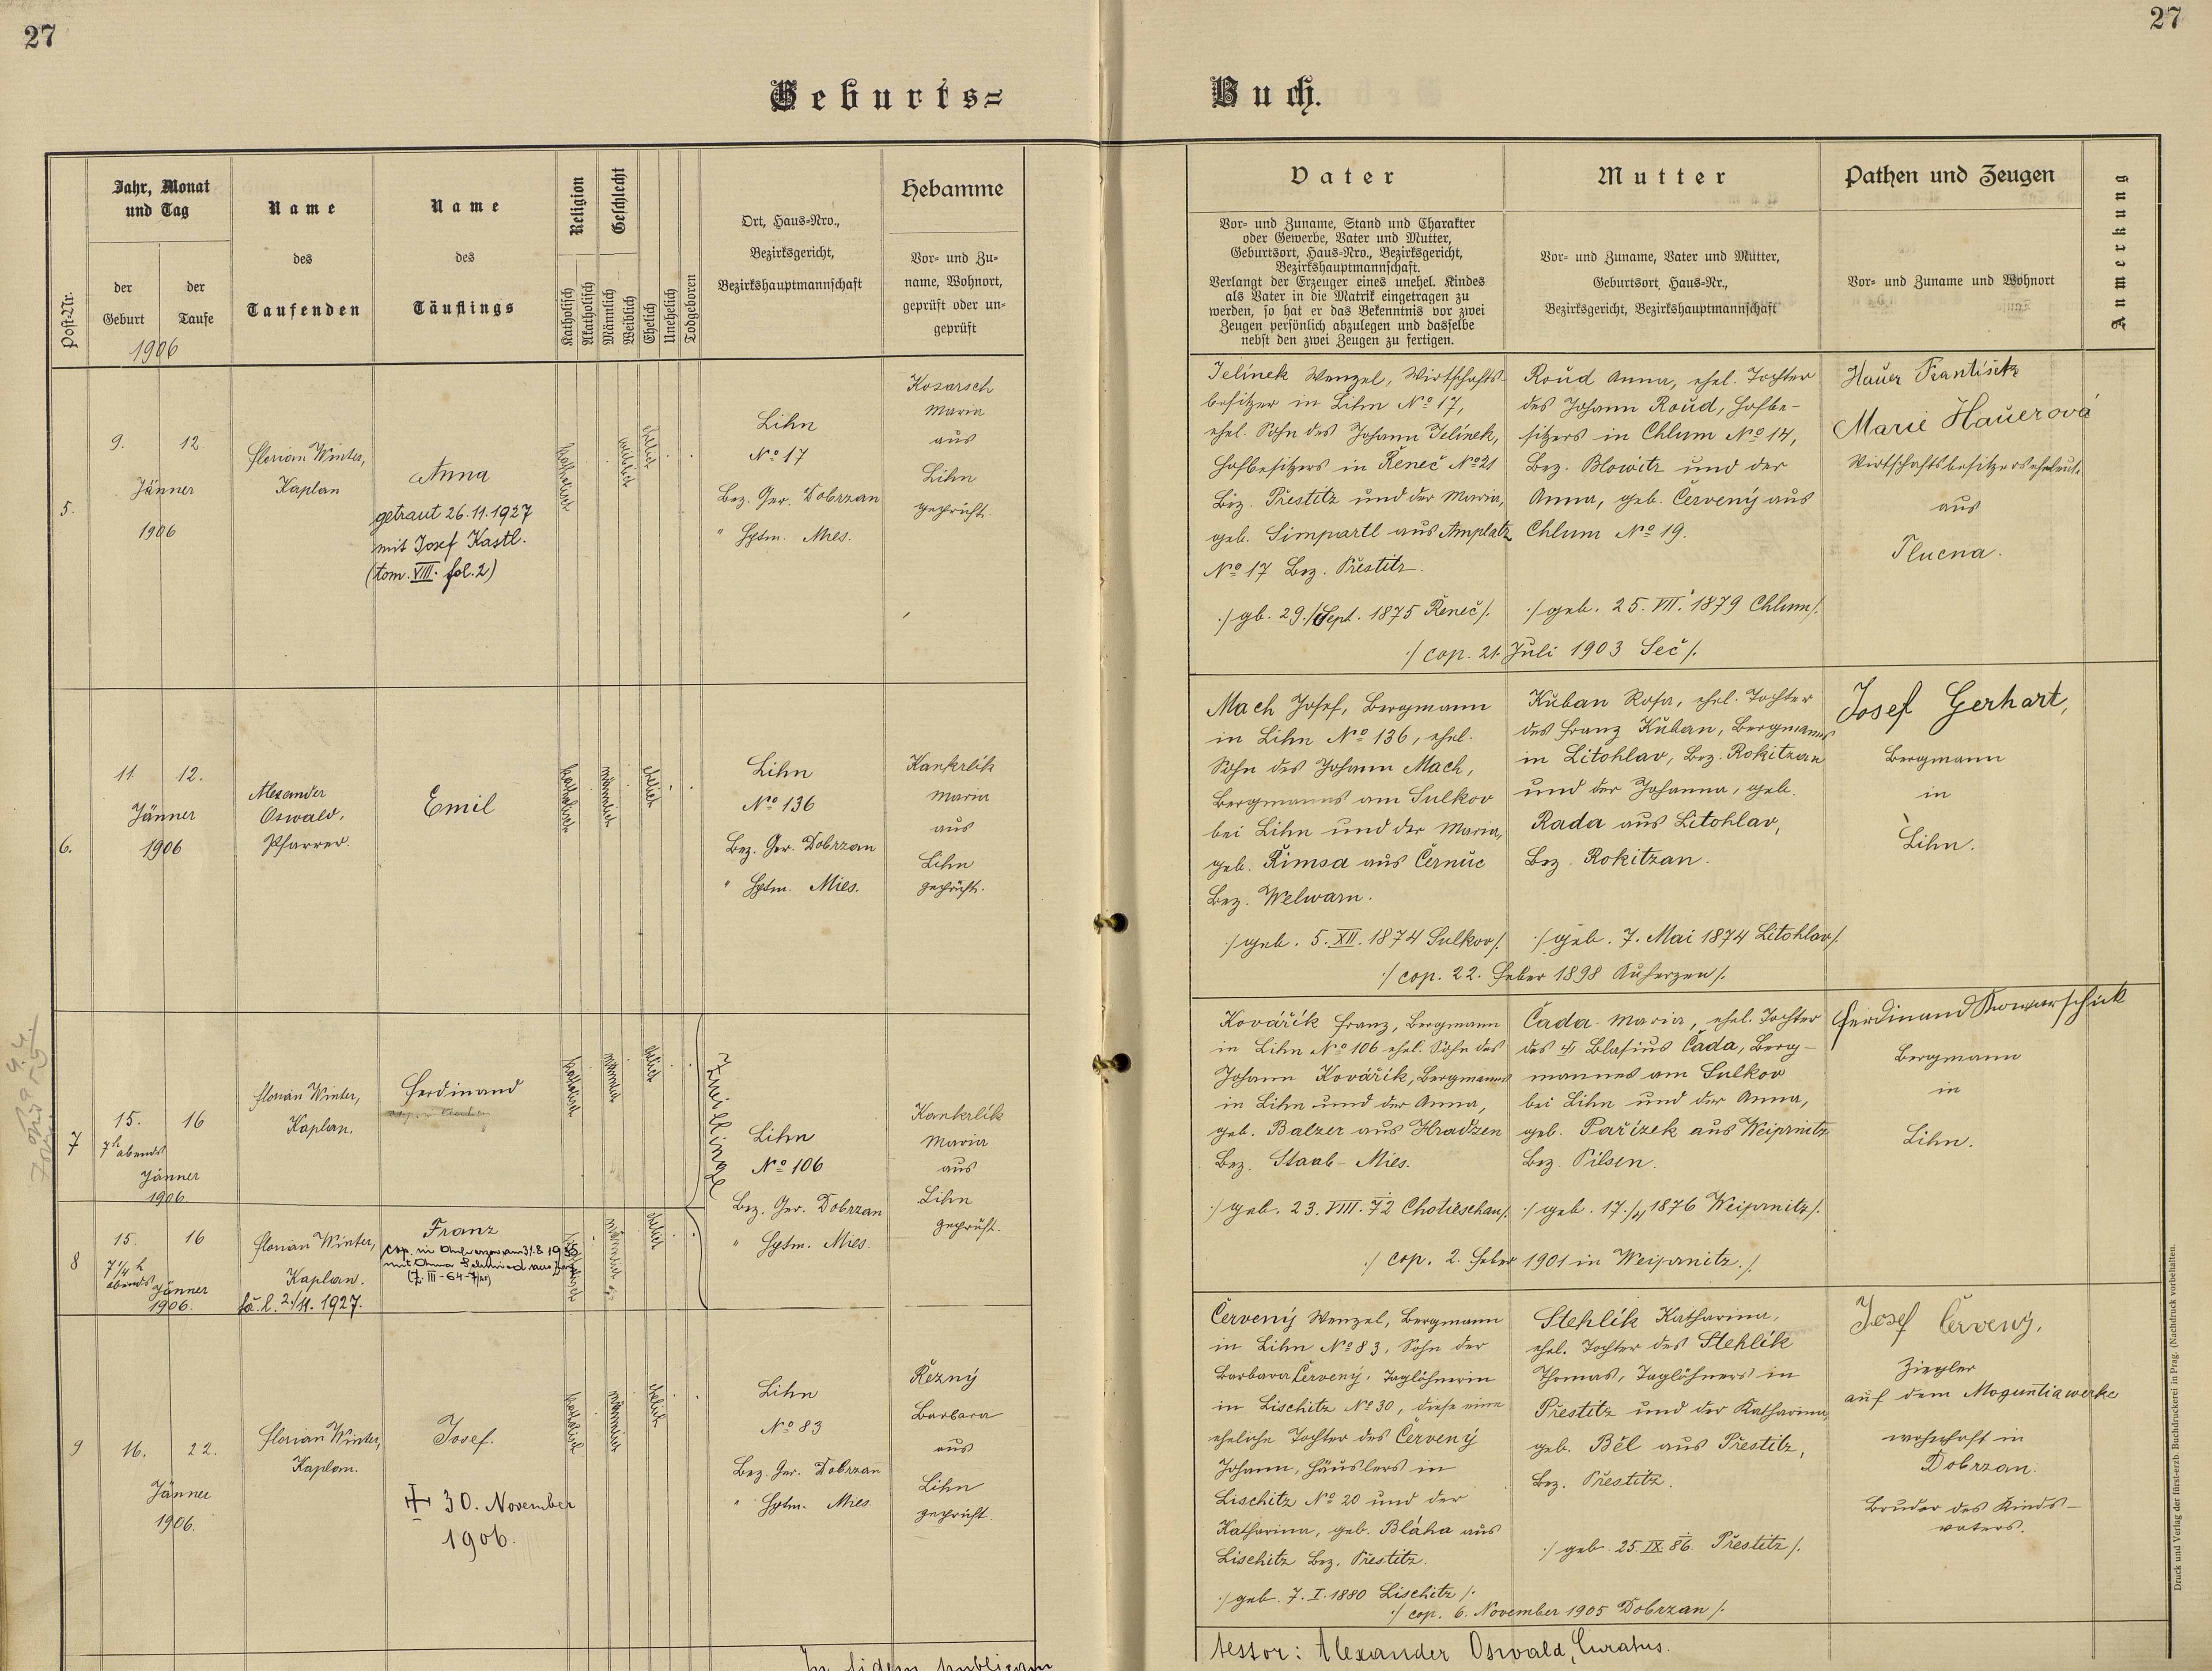 27
27
Geburts=
Buch.
Post-Nr.
Jahr, Monat
und Tag
der
Geburt
der
Taufe
1906
Name
des
Taufenden
Name
des
Täuflings
Religion
Katholisch
Akatholisch
Geschlecht
Männlich
Weiblich
Ehelich
Unehelich
Todgeboren
Ort, Haus-Nro.,
Bezirksgericht,
Bezirkshauptmannschaft
Hebamme
Vor- und Zu-
name, Wohnort,
geprüft oder un-
geprüft
Vater
Vor- und Zuname, Stand und Charakter
oder Gewerbe, Vater und Mutter,
Geburtsort, Haus-Nro., Bezirksgericht,
Bezirkshauptmannschaft.
Verlangt der Erzeuger eines unehel. Kindes
als Vater in die Matrik eingetragen zu
werden, so hat er das Bekenntnis vor zwei
Zeugen persönlich abzulegen und dasselbe
nebst den zwei Zeugen zu fertigen.
Mutter
Vor- und Zuname, Vater und Mutter,
Geburtsort, Haus-Nr.,
Bezirksgericht, Bezirkshauptmannschaft
Pathen und Zeugen
Vor- und Zuname und Wohnort
Anmerkung
5.
9. 12.
Jänner
1906
Florian Winter,
Kaplan
Anna
getraut 26.11.1927
mit Josef Kastl.
(tom. VIII. fol. 2)
katholisch
weiblich
ehelich
Lihn
No 17
Bez. Ger. Dobrzan
" Hptm. Mies.
Kosarsch
Maria
aus
Lihn
geprüft.
Jelínek Wenzel, Wirtschafts-
besitzer in Lihn No 17,
ehel. Sohn des Johann Jelínek,
Hofbesitzers in Řeneč No 21
Bez. Přestitz und der Maria,
geb. Simpartl aus Amplatz
No 17 Bez. Přestitz.
:/ gb. 29./Sept. 1875 Řeneč /:
Roud Anna, ehel. Tochter
des Johann Roud, Hofbe-
sitzers in Chlum No 14,
Bez. Blowitz und der
Anna, geb. Červený aus
Chlum No 19.
:/ geb. 25. VII. 1879 Chlum /:
:/ cop. 21. Juli 1903 Seč /:
Hauer František
Marie Hauerová
Wirtschaftsbesitzerseheleut.
aus
Plucna.
6.
11. 12.
Jänner
1906
Alexander
Oswald,
Pfarrer.
Emil
katholisch
männlich
ehelich
Lihn
No 136
Bez. Ger. Dobrzan
" Hptm. Mies.
Kankrlík
Maria
aus
Lihn
geprüft.
Mach Josef, Bergmann
in Lihn No 136, ehel.
Sohn des Johann Mach,
Bergmanns am Sulkov
bei Lihn und der Maria,
geb. Řimsa aus Černuc
Bez. Welwarn.
:/ geb. 5. XII. 1874 Sulkov /:
Kuban Rosa, ehel. Tochter
des Franz Kuban, Bergmanns
in Litohlav, Bez. Rokitzan
und der Johanna, geb.
Rada aus Litohlav,
Bez. Rokitzan.
:/ geb. 7. Mai 1874 Litohlav /:
:/ cop. 22. Feber 1898 Auherzen /:
Josef Gerhart,
Bergmann
in
Lihn.
7
15. 16
7h abends
Jänner
1906.
Florian Winter,
Kaplan.
Ferdinand
katholisch
männlich
ehelich
Zwillinge
Lihn
No 106
Bez. Ger. Dobrzan
" Hptm. Mies.
Kankrlík
Maria
aus
Lihn
geprüft.
Kovářík Franz, Bergmann
in Lihn No 106 ehel. Sohn des
Johann Kovářík, Bergmanns
in Lihn und der Anna,
geb. Balzer aus Hradzen
Bez. Staab - Mies.
:/ geb. 23. VIII. 72 Chotieschau /:
Čada Maria, ehel. Tochter
des Blasius Čada, Berg-
mannes am Sulkov
bei Lihn und der Anna,
geb. Pařízek aus Weiprnitz
Bez. Pilsen.
:/ geb. 17./4 1876 Weiprnitz /:
:/ cop. 2. Feber 1901 in Weiprnitz. /:
Ferdinand Kowarschik
Bergmann
in
Lihn.
8
15. 16
7 1/4 h
abends Jänner
1906.
Florian Winter,
Kaplan.
2./11. 1927.
Franz
cop. in Auherzen am 31.8 1935
mit Anna
katholisch
männlich
ehelich
9
16. 22.
Jänner
1906.
Florian Winter,
Kaplan.
Josef.
+ 30. November
1906.
katholisch
männlich
ehelich
Lihn
No 83
Bez. Ger. Dobrzan
" Hptm. Mies
Řezný
Barbara
aus
Lihn
geprüft.
Červený Wenzel, Bergmann
in Lihn No 83, Sohn der
Barbara Červený, Taglöhnerin
in Lischitz No 30, diese eine
eheliche Tochter des Červený
Johann, Häuslers in
Lischitz No 20 und der
Katharina, geb. Bláha aus
Lischitz Bez. Přestitz.
:/ geb. 7. I. 1880 Lischitz /:
Stehlík Katharina,
ehel. Tochter des Stehlík
Thomas, Taglöhners in
Přestitz und der Katharina,
geb. Běl aus Přestitz,
Bez. Přestitz.
:/ geb. 25. IX. 86. Přestitz /:
:/ cop. 6. November 1905 Dobrzan /:
Josef Červený,
Ziegler
auf dem Moguntiawerke
wohnhaft in
Dobrzan.
Bruder des Kinds-
vaters.
In fidem publicam
testor: Alexander Oswald, Curatus.
Druck und Verlag der fürst-erzb Buchdruckerei in Prag. (Nachdruck vorbehalten.